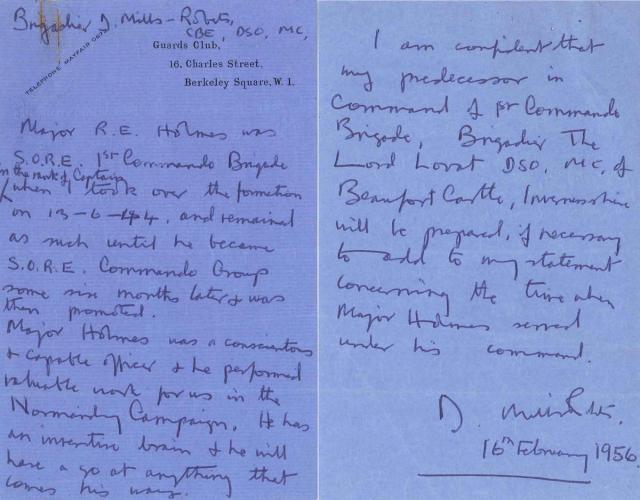 Brigadier D. Mills-Roberts,
CBE, DSO, MC,
TELEPHONE MAYFAIR
Guards Club,
16, Charles Street,
Berkeley Square, W. 1.
Major R.E. Holmes was
S.O.R.E. 1st Commando Brigade
in the rank of Captain
when I took over the formation
on 13-6-44, and remained
as such until he became
S.O.R.E. Commando Group
some six months later & was
then promoted.
Major Holmes was a conscientous
& capable officer & he performed
valuable work for us in the
Normandy Campaign. He has
an inventive brain & he will
have a go at anything that
comes his way.
I am confident that
my predecessor in
Command of 1st Commando
Brigade, Brigadier The
Lord Lovat DSO, MC, of
Beaufort Castle, Invernesshire
will be prepared, if necessary
to add to my statement
concerning the time when
Major Holmes served
under his command.
D. Mills-Roberts.
16th February 1956